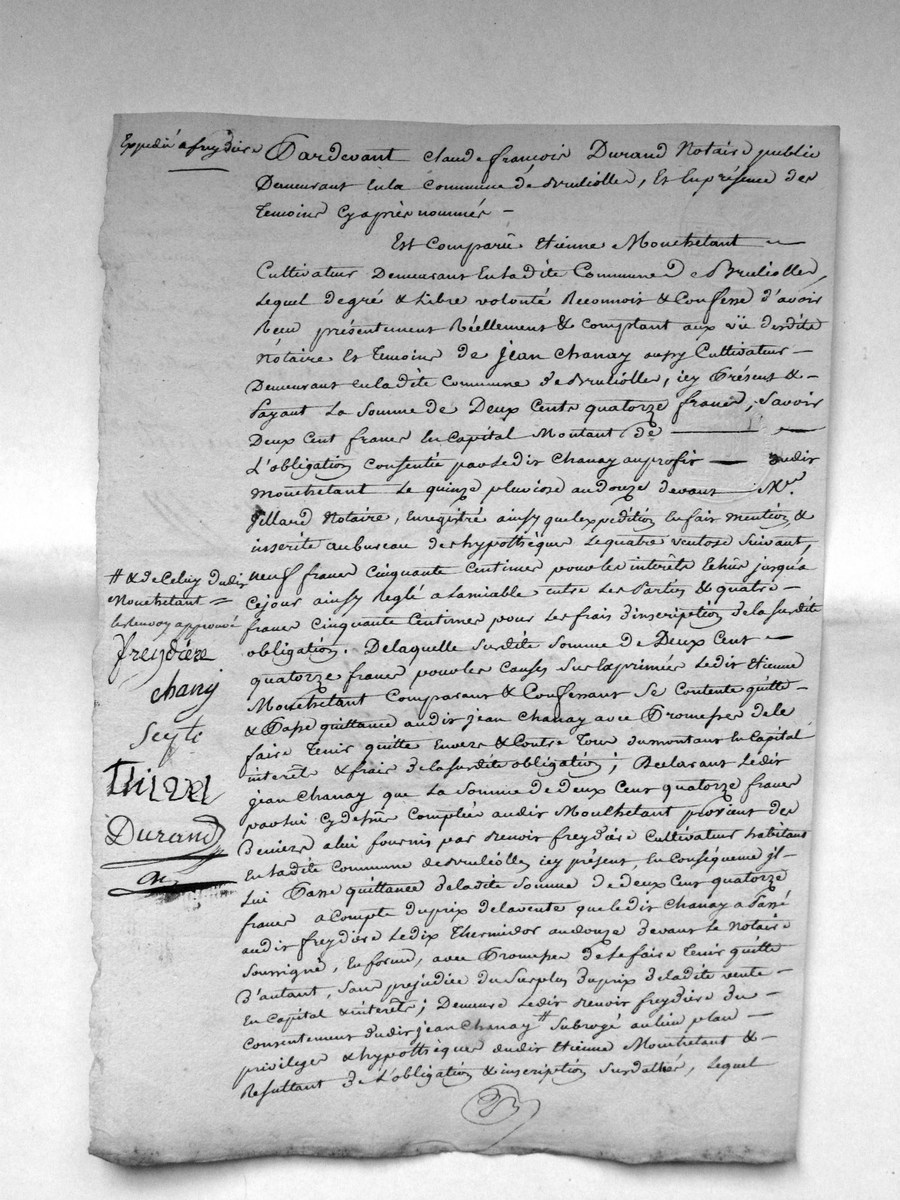 Expedié a freydiere
Pardevant Claude françois Durand Notaire public
Demeurant En la Commune de Brulioller, Et En présence des
Temoins Cy après nommés –
Est Comparû Etienne Mouchetant –
Cultivateur Demeurant En ladite Commune de Brulioller,
Lequel de gré & Libre volonté Reconnois & Confesse d'avoir
Recu présentement Réellement & comptant aux vüe desdits
Notaire Et Temoins de jean Chanay aussy Cultivateur –
Demeurant en ladite Commune de Brulioller, icy Présent & –
Payant La Somme de Deux Cents quatorze francs, Savoir
Deux Cent francs En Capital Montant de
L'obligation Consentie par Ledit Chanay au profit – dudit
Mouchetant Le quinze pluviose an douze devant Me.
Jillard Notaire, Enregistré ainsy que l'expedition En fait mention &
inscrite au bureau des hypothèques Le quatre ventose Suivant,
neuf francs Cinquante Centimes pour les interêts Echûs jusqu'a
Ce jour ainsy Reglé a Lamiable entre Les Parties & quatre –
francs Cinquante Centimes pour Les frais d'inscription de la Susdite
obligation. De laquelle Susdite Somme de Deux Cent –
quatorze francs pour les Causes Sus Exprimées Ledit Etienne
Mouchetant Comparant & Confessant Se Contente quitte –
& Passe quittance audit jean Chanay avec Promesse de le
faire Tenir quitte Envers & Contre Tous du montant En Capital
interêts & frais de la Susdite obligation; Declarant Ledit
jean Chanay que La Somme de deux Cent quatorze francs
par lui Cy dessus Comptée audit Mouchetant provient des
Deniers a lui fournis par Benoit freydiere Cultivateur habitant
En ladite Commune de Brulioller icy présent, En Conséquence il –
Lui Passe quittance de ladite Somme de deux Cent quatorze
francs a Compte du prix de la vente que ledit Chanay a Passé
audit freydiere Le dix Thermidor an douze devant Le Notaire
Soussigné, En forme, avec Promesse de le faire Tenir quitte
D'autant, Sans prejudice du Surplus du prix de ladite vente –
En Capital & interêts; Demeure Ledit Benoit freydiere du –
Consentement dudit jean Chanay # Subrogé au lieu place –
privileges & hypothèques dudit Etienne Mouchetant & –
Resultant de L'obligation & inscription Susdattés, Lequel
# & de Celuy dudit
Mouchetant =
le renvoy approuvé
freydiere
chanay
Seyte
Durand